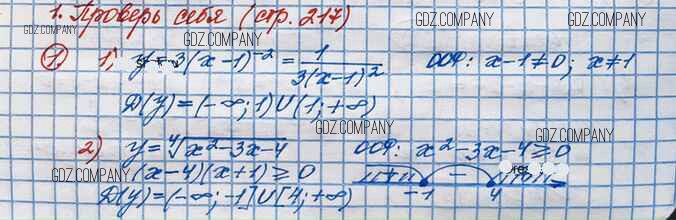 1. Проверь себя (стр. 217)
GDZ.COMPANY GDZ.COMPANY GDZ.COMPANY
① 1) y = 3(x-1)⁻² = 1/3(x-1)² ООФ: x-1≠0; x≠1
D(y) = (-∞; 1) U (1; +∞)
GDZ.COMPANY GDZ.COMPANY GDZ.COMPANY
2) y = ⁴√x²-3x-4 ООФ: x²-3x-4 ≥ 0
GDZ.COMPANY (x-4)(x+1) ≥ 0 + −
D(y) = (-∞; -1] U [4; +∞) -1 4
GDZ.COMPANY